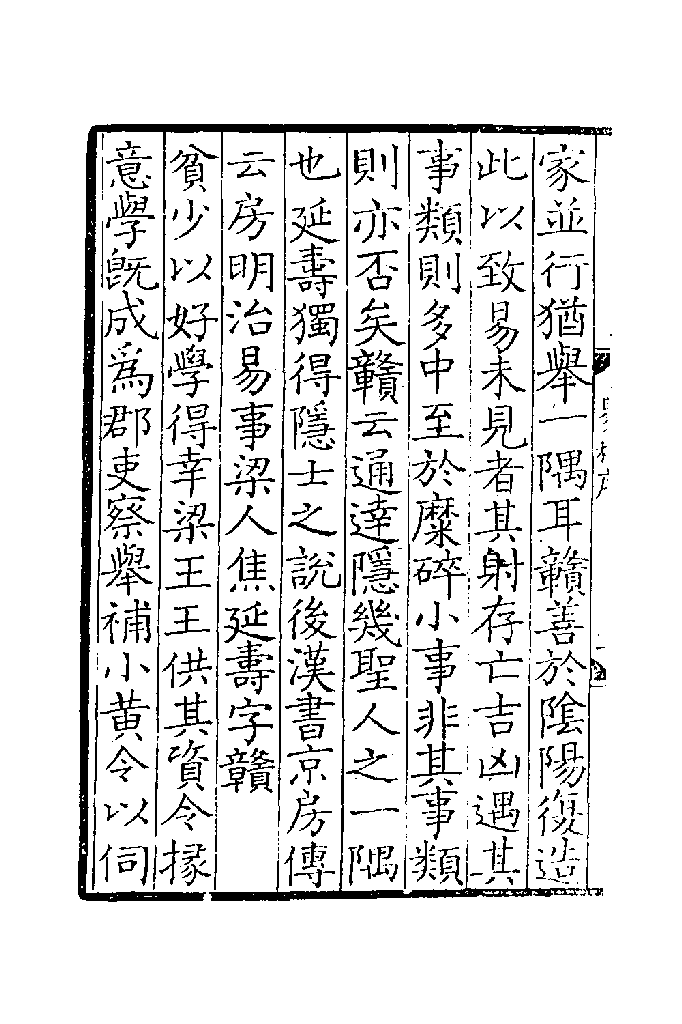 家並行猶舉一隅耳贛善於陰陽復造
此以致易未見者其射存亡吉凶遇其
事類則多中至於糜碎小事非其事類
則亦否矣贛云通達隱幾聖人之一隅
也延壽獨得隱士之說後漢書京房傳
云房明治易事梁人焦延壽字贛
貧少以好學得幸梁王王供其資令據
意學既成爲郡吏察舉補小黃令以伺